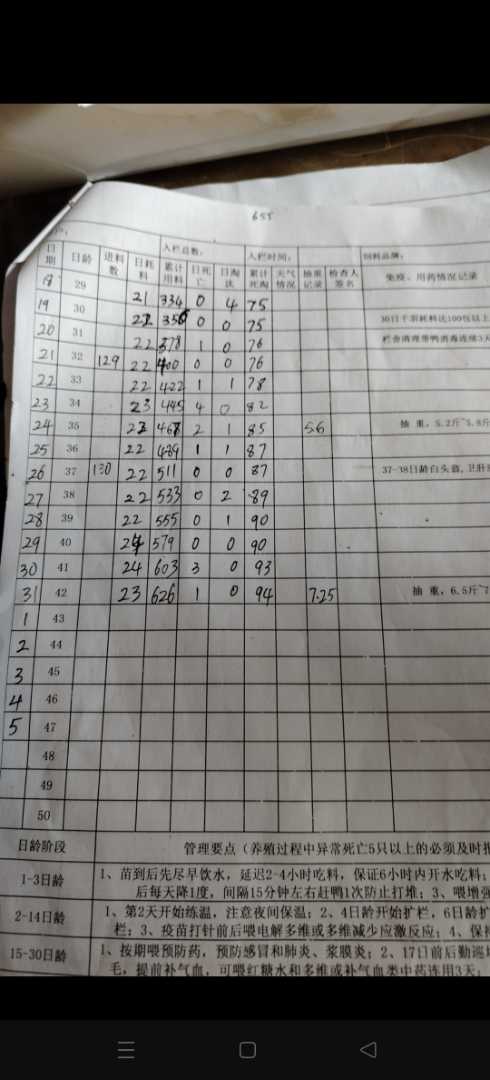 655
户:
日期 日龄 进料数 日耗料 入栏总数: 累计用料 日死亡 日淘汰 入栏时间: 累计死淘 天气情况 抽重记录 检查人签名 饲料品牌: 免疫、用药情况记录
18 29
19 30 21 334 0 4 75
20 31 22 356 0 0 75 30日千羽耗料达100包以上
21 32 129 22 378 1 0 76 栏舍清理带鸭消毒连续3天
22 33 22 400 0 0 76
23 34 22 422 1 1 78
24 35 23 445 4 0 82
25 36 23 468 2 1 85 5.6 抽重,5.2斤~5.8斤
26 37 130 22 489 1 1 87
27 38 22 511 0 0 87 37-38日龄
28 39 22 533 0 2 89
29 40 22 555 0 1 90
30 41 24 579 0 0 90
31 42 24 603 3 0 93
1 43 23 626 1 0 94 7.25 抽重,6.5斤~7
2 44
3 45
4 46
5 47
48
49
50
日龄阶段 管理要点(养殖过程中异常死亡5只以上的必须及时报
1-3日龄 1、苗到后先尽早饮水,延迟2-4小时吃料,保证6小时内开水吃料;
后每天降1度,间隔15分钟左右赶鸭1次防止打堆;3、喂增强
2-14日龄 1、第2天开始练温,注意夜间保温;2、4日龄开始扩栏,6日龄扩
栏;3、疫苗打针前后喂电解多维或多维减少应激反应;4、保持
15-30日龄 1、按期喂预防药,预防感冒和肺炎、浆膜炎;2、17日前后勤巡
毛,提前补气血,可喂红糖水和多维或补气血类中药连用3天;